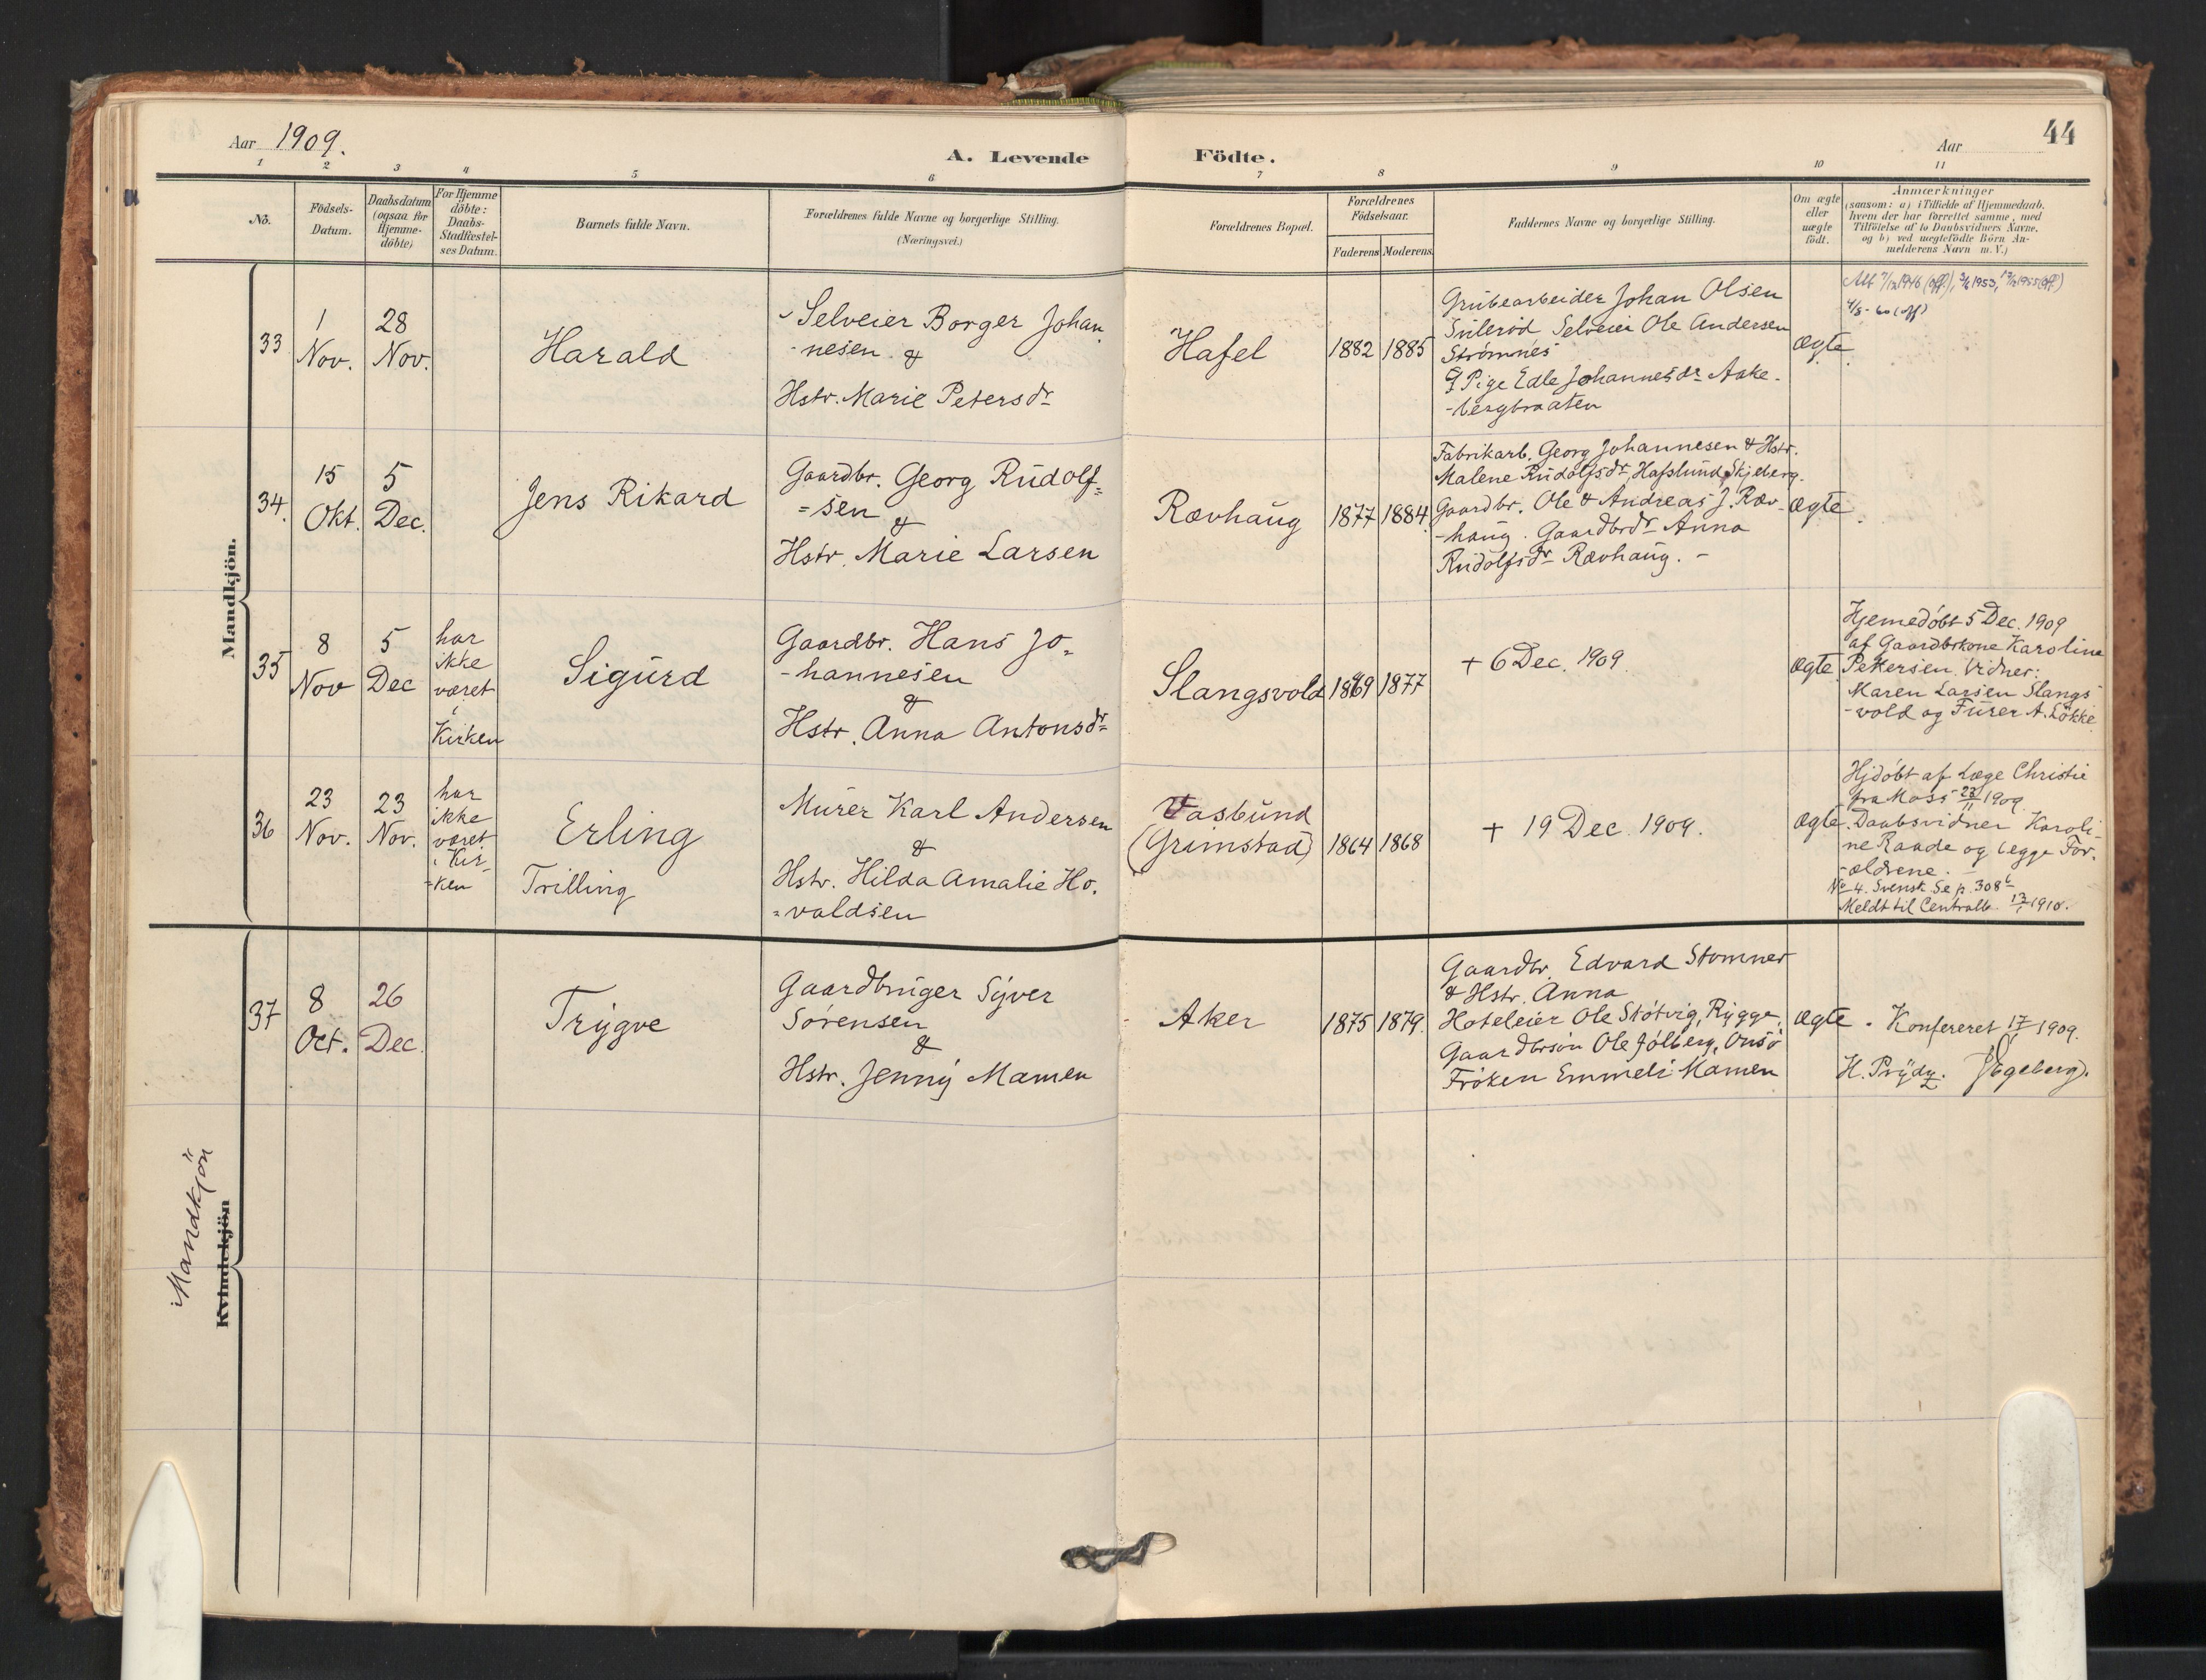 Aar 1909.
A. Levende
Födte.
Aar
44
1 2 3 4 5 6 7 8 9 10 11
No.
Födsels-
Datum.
Daabsdatum
(ogsaa for
Hjemme-
döbte)
For Hjemme
döbte:
Daabs-
Stadfæstel-
ses Datum.
Barnets fulde Navn.
Forældrenes fulde Navne og borgerlige Stilling.
(Næringsvei.)
Forældrenes Bopæl.
Forældrenes
Födselsaar.
Faderens
Moderens
Faddernes Navne og borgerlige Stilling.
Om ægte
eller
uægte
födt.
Anmærkninger
(saasom: a) i Tilfælde af Hjemmedaab.
hvem der har forrettet samme, med
Tilföielse af to Daabsvidners Navne.
og b) ved uegtefödte Börn An-
melderens Navn m. V.)
Mandkjön.
33
1
Nov.
28
Nov.
Harald
Selveier Borger Johan
-nesen &
Hstr. Marie Petersdr
Hafel
1882
1885
Grubearbeider Johan Olsen
Selveier Ole Andersen
Strømnes
& Pige Edle Johannesdr Aake-
-bergbraaten
ægte
1946 (off), 1953, 1955 (off)
60 (off)
34.
15
Okt.
5
Dec.
Jens Rikard
Gaardbr. Georg Rudolf=
=sen
&
Hstr. Marie Larsen
Rævhaug
1877
1884
Fabrikarb. Georg Johannesen & Hstr.
Malene Rudolfsdr Hafslund, Skjeberg.
Gaardbr. Ole & Andreas J. Ræv-
-haug. Gaardbrdr Anna
Rudolfsdr Rævhaug. -
ægte
35
8
Nov
5
Dec
har
ikke
været
i
Kirken
Sigurd
Gaardbr. Hans Jo-
-hannesen
&
Hstr. Anna Antonsdr
Slangsvold
1869
1877
+ 6 Dec. 1909.
ægte
Hjemedöbt 5 Dec. 1909
af Gaardbrkone Karoline
Pettersen. Vidner:
Maren Larsen Slangs
-vold og Furer A. Løkke
36
23
Nov.
23
Nov.
har
ikke
været
i Kir-
-ken
Erling
Trilling
Murer Karl Andersen
&
Hstr. Hilda Amalie Ho.
=valdsen
Vasbund
(Grimstad)
1864
1868
+ 19 Dec. 1909.
ægte
Hjdöbt af Læge Christie
fra Moss 23/11 1909.
Daabsvidner Karoli-
ne Raade og begge For.
-ældrene.
No 4. Svensk Se p. 308
Meldt til Centralb. 13/1 1910.
Mandkjön
Kvindekjön
37
8
Oct.
26
Dec.
Trygve
Gaardbruger Syver
Sørensen
&
Hstr. Jenny Mamen
Aker
1875
1879.
Gaardbr. Edvard Stomner
& Hstr. Anna
Hoteleier Ole Støtvig, Rygge,
Gaardbrsøn Ole Jølberg, Onsø
Frøken Emmeli Mamen
ægte
Konfereret 1909.
H. Prydz. (Egeberg).